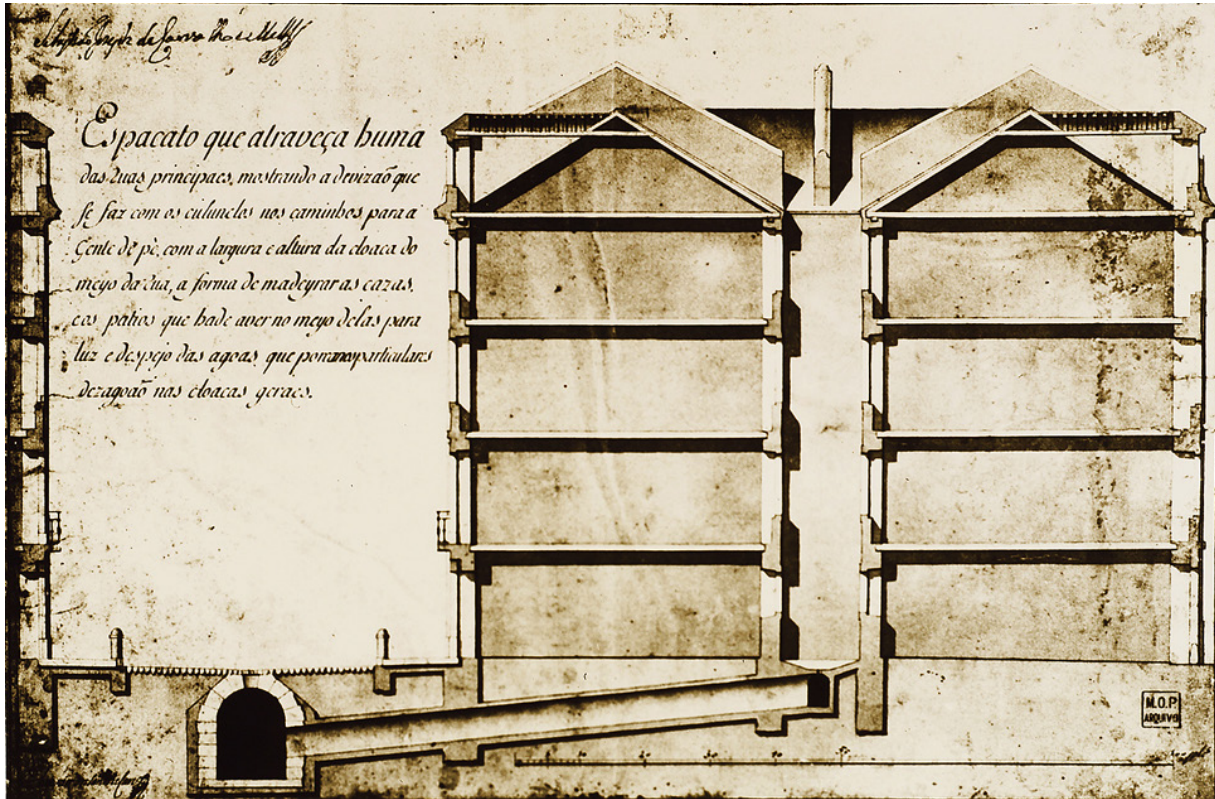 Sebastião Joseph de Carvalho e Mello
Espacato que atraveça huma
das Ruas principaes, mostrando a devizaõ que
se faz com os culunelos nos caminhos para a
Gente de pè, com a largura e altura da cloaca do
meyo da Rua, a forma de madeyrar as cazas,
e os patios que hade aver no meyo delas para
luz e despejo das agoas, que por canos particulares
dezagoaõ nas cloacas geraes.
M.O.P.
ARQUIVO